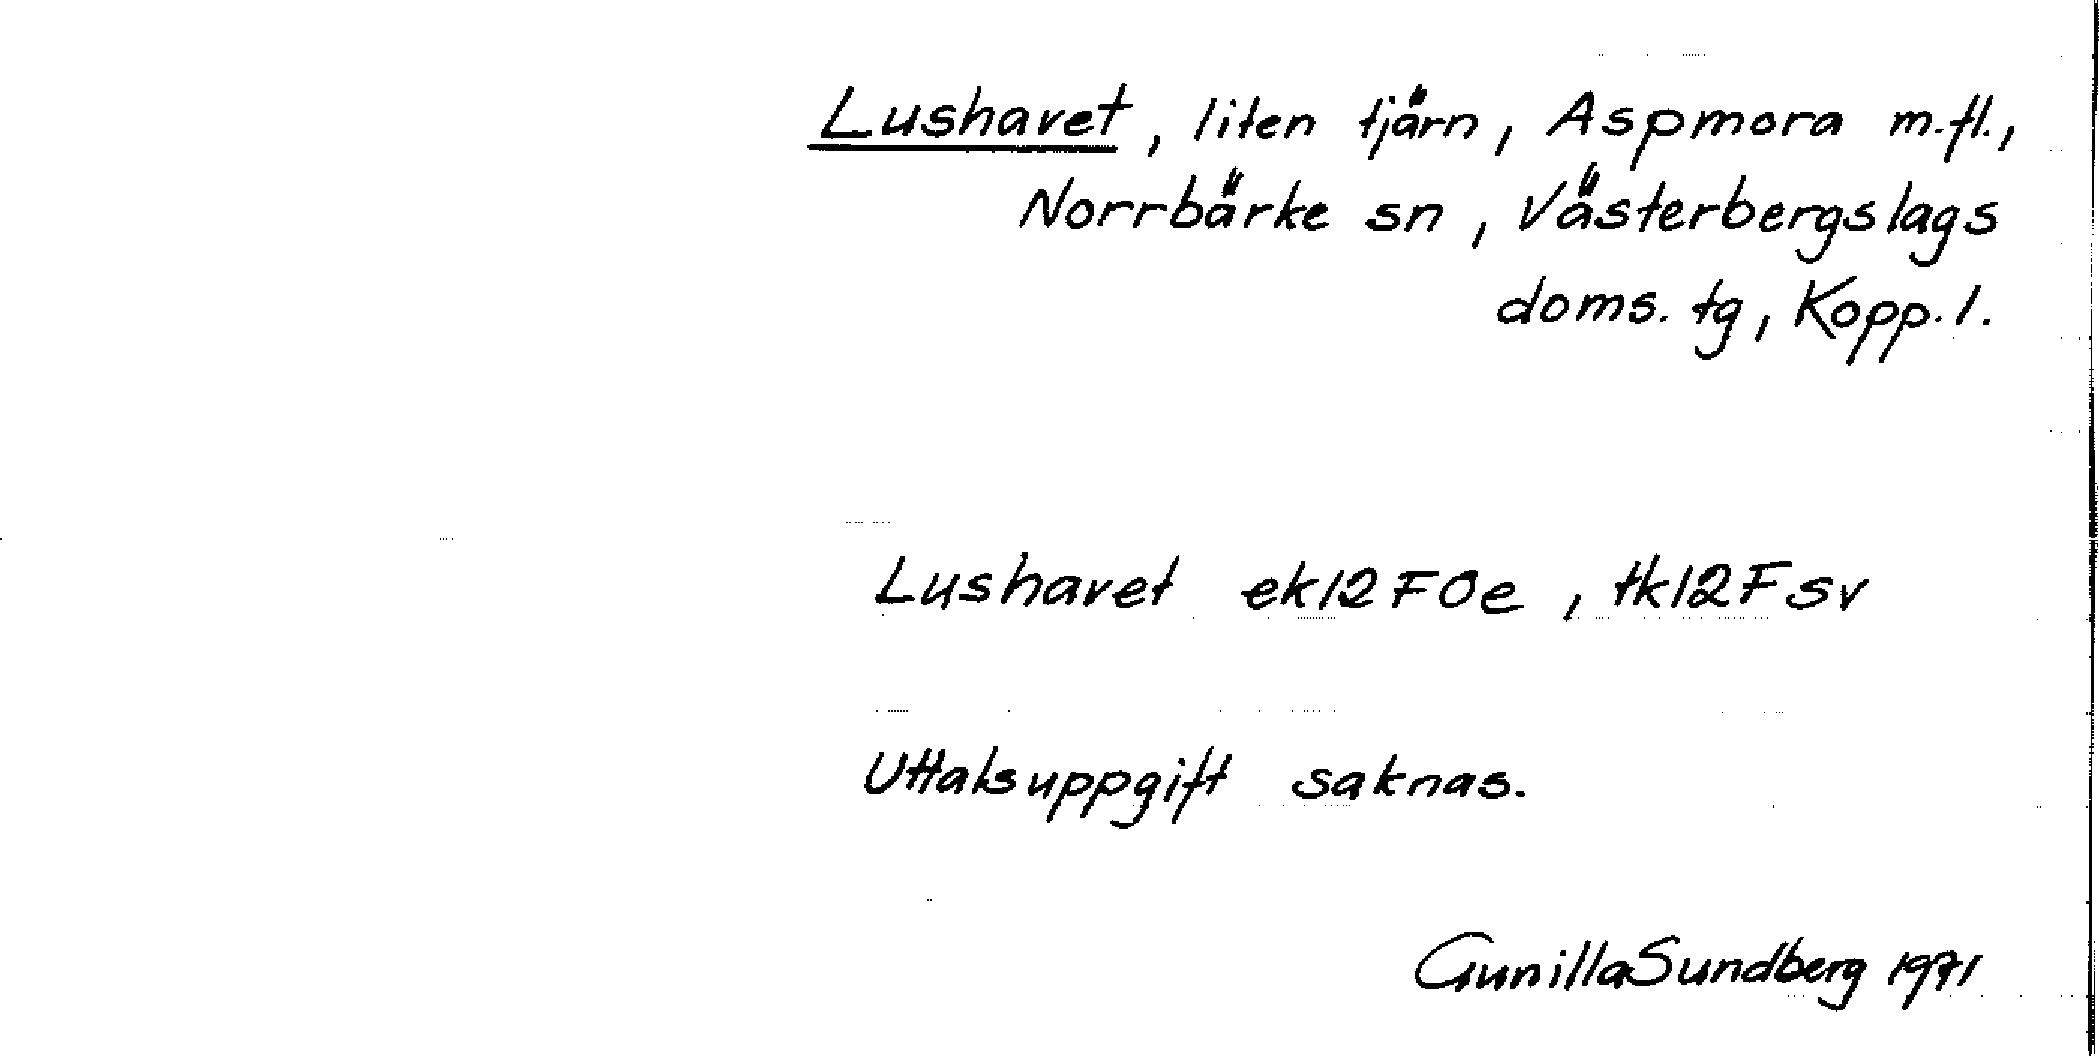 Lushavet, liten tjärn, Aspmora m.fl.,
Norrbärke sn, Västerbergslags
doms. tg, Kopp. l.
Lushavet ek12F0e, tk12Fsv
Uttalsuppgift saknas.
Gunilla Sundberg 1971